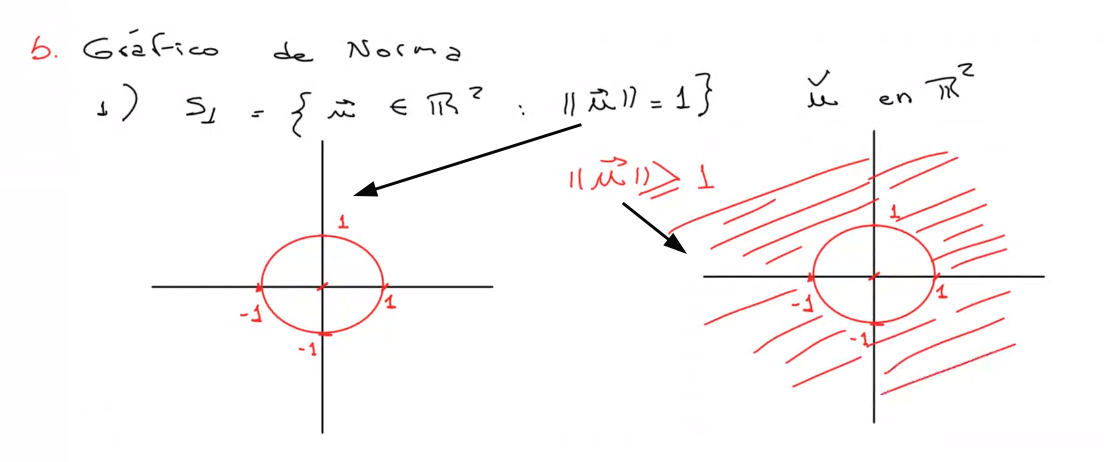 b. Gráfico de Norma
1) S₁ = { u⃗ ∈ ℝ² : ||u⃗|| = 1 } ǔ en ℝ²
||u⃗|| ≥ 1
1
-1
1
-1
1
-1
1
-1